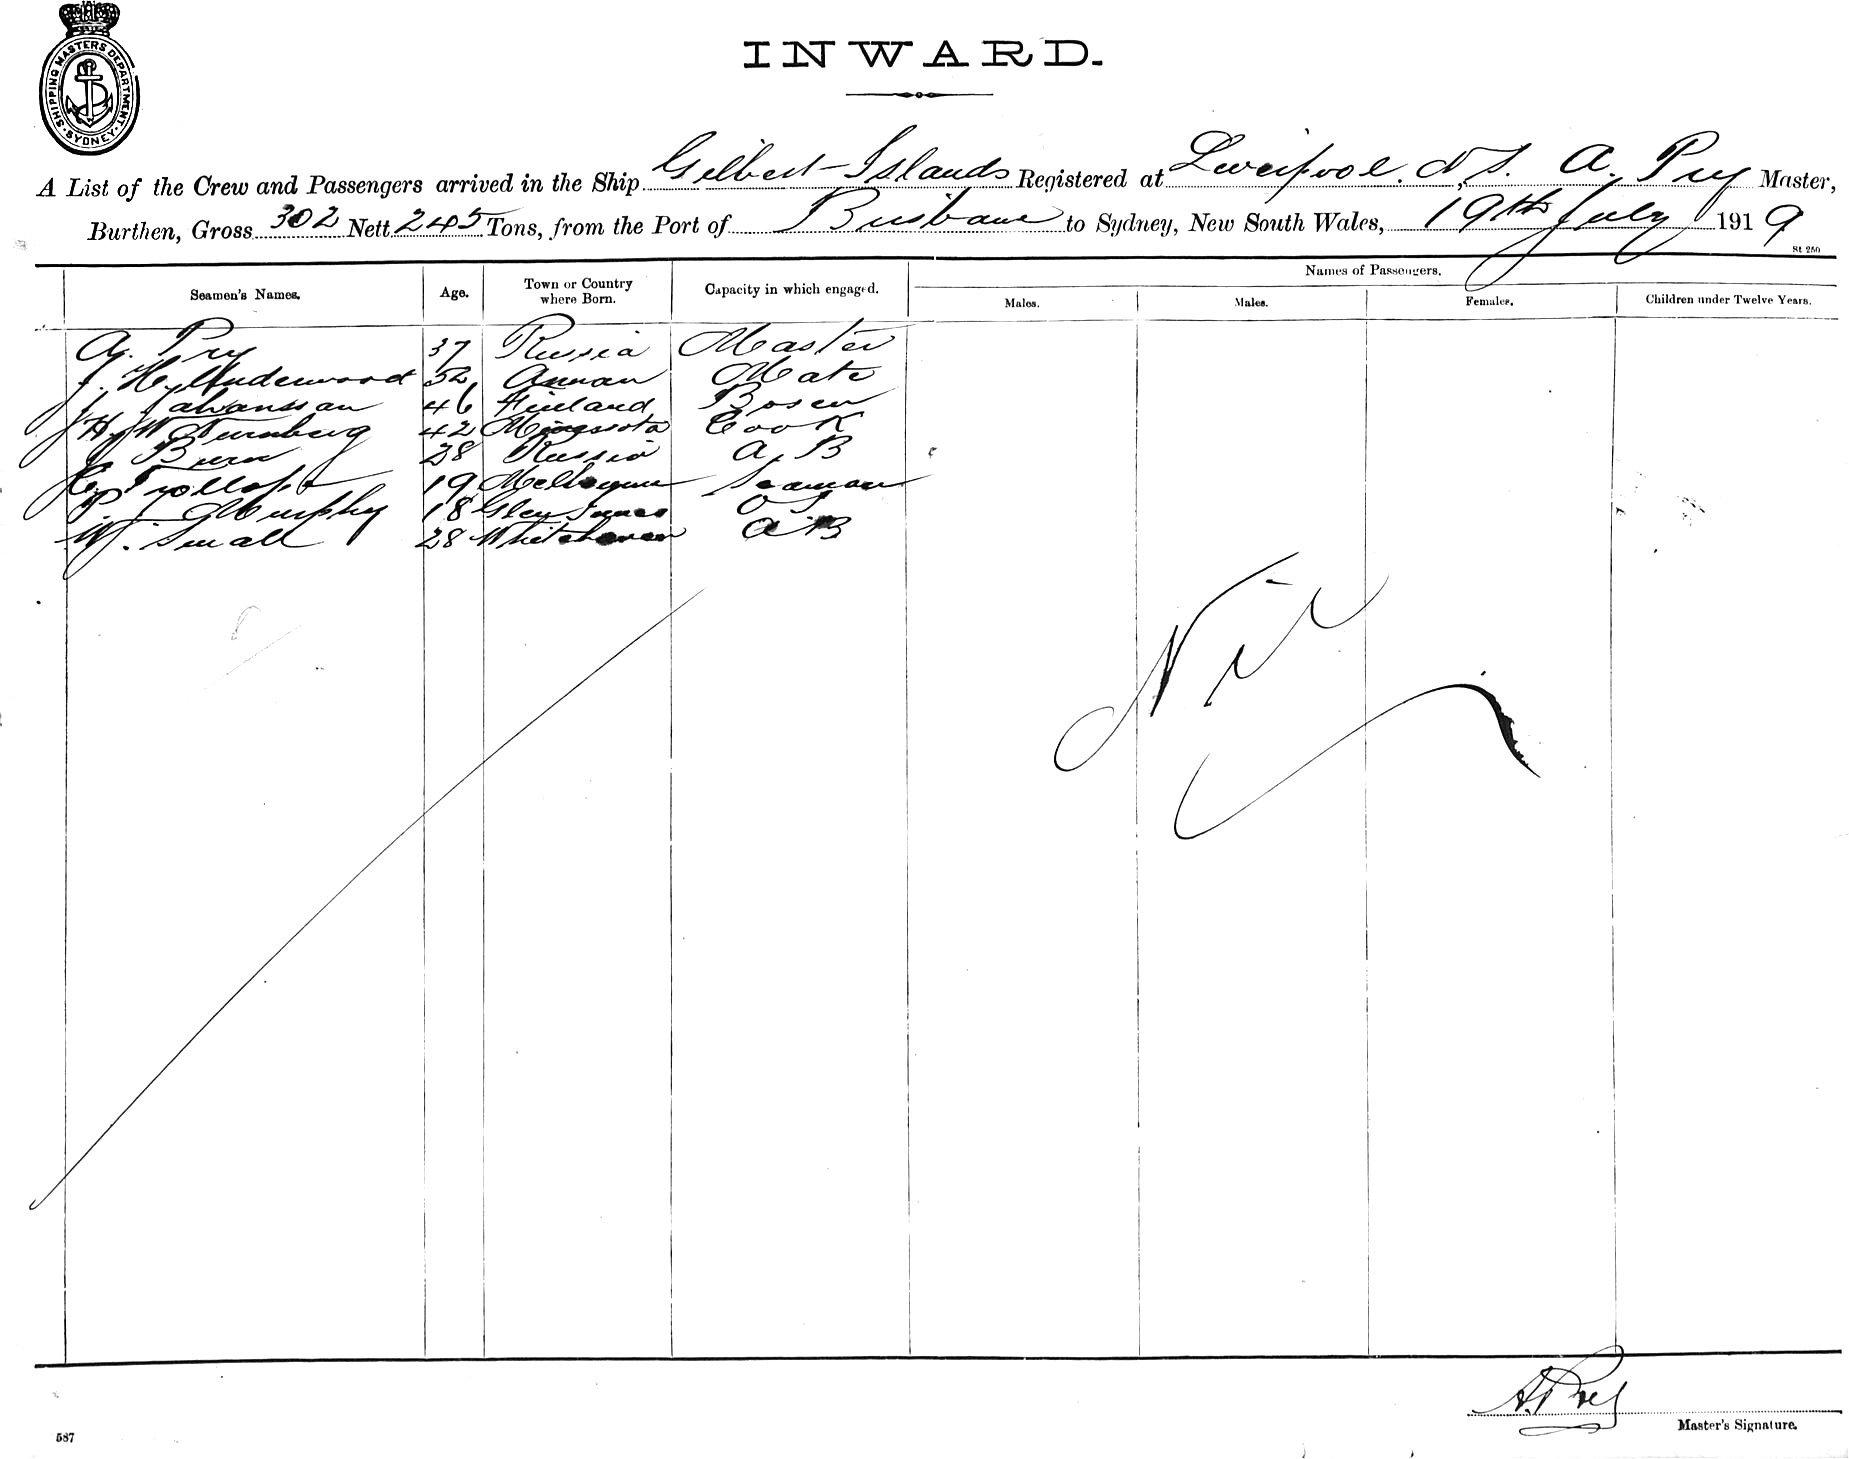 SHIPPING MASTERS DEPARTMENT. SYDNEY
INWARD.
A List of the Crew and Passengers arrived in the Ship Gilbert Islands Registered at Liverpool. N.S. A. Pry Master,
Burthen, Gross 302 Nett 245 Tons, from the Port of Brisbane to Sydney, New South Wales, 19th July 1919
St 250
Seamen's Names. Age. Town or Country where Born. Capacity in which engaged. Names of Passengers.
Males. Males. Females. Children under Twelve Years.
Pry 37 Russia Master
J. H. Underwood 52 Annan Mate
J. Johansson 46 Finland Bosen
H. W. Nurnberg 42 Minessota Cook
Burn 28 Russia A.B
Trollop 19 Melbourne Seaman
P. Murphy 18 Glen Innes O S
W. Small 28 Whitehaven A B
Nil
A. Prey
Master's Signature.
587